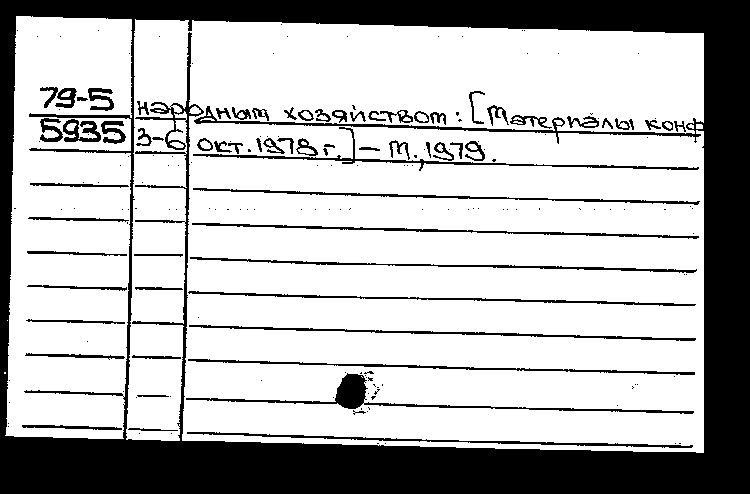 79-5 народным хозяйством: [Материалы конф
5935 3-6 окт. 1978 г.] – М., 1979.